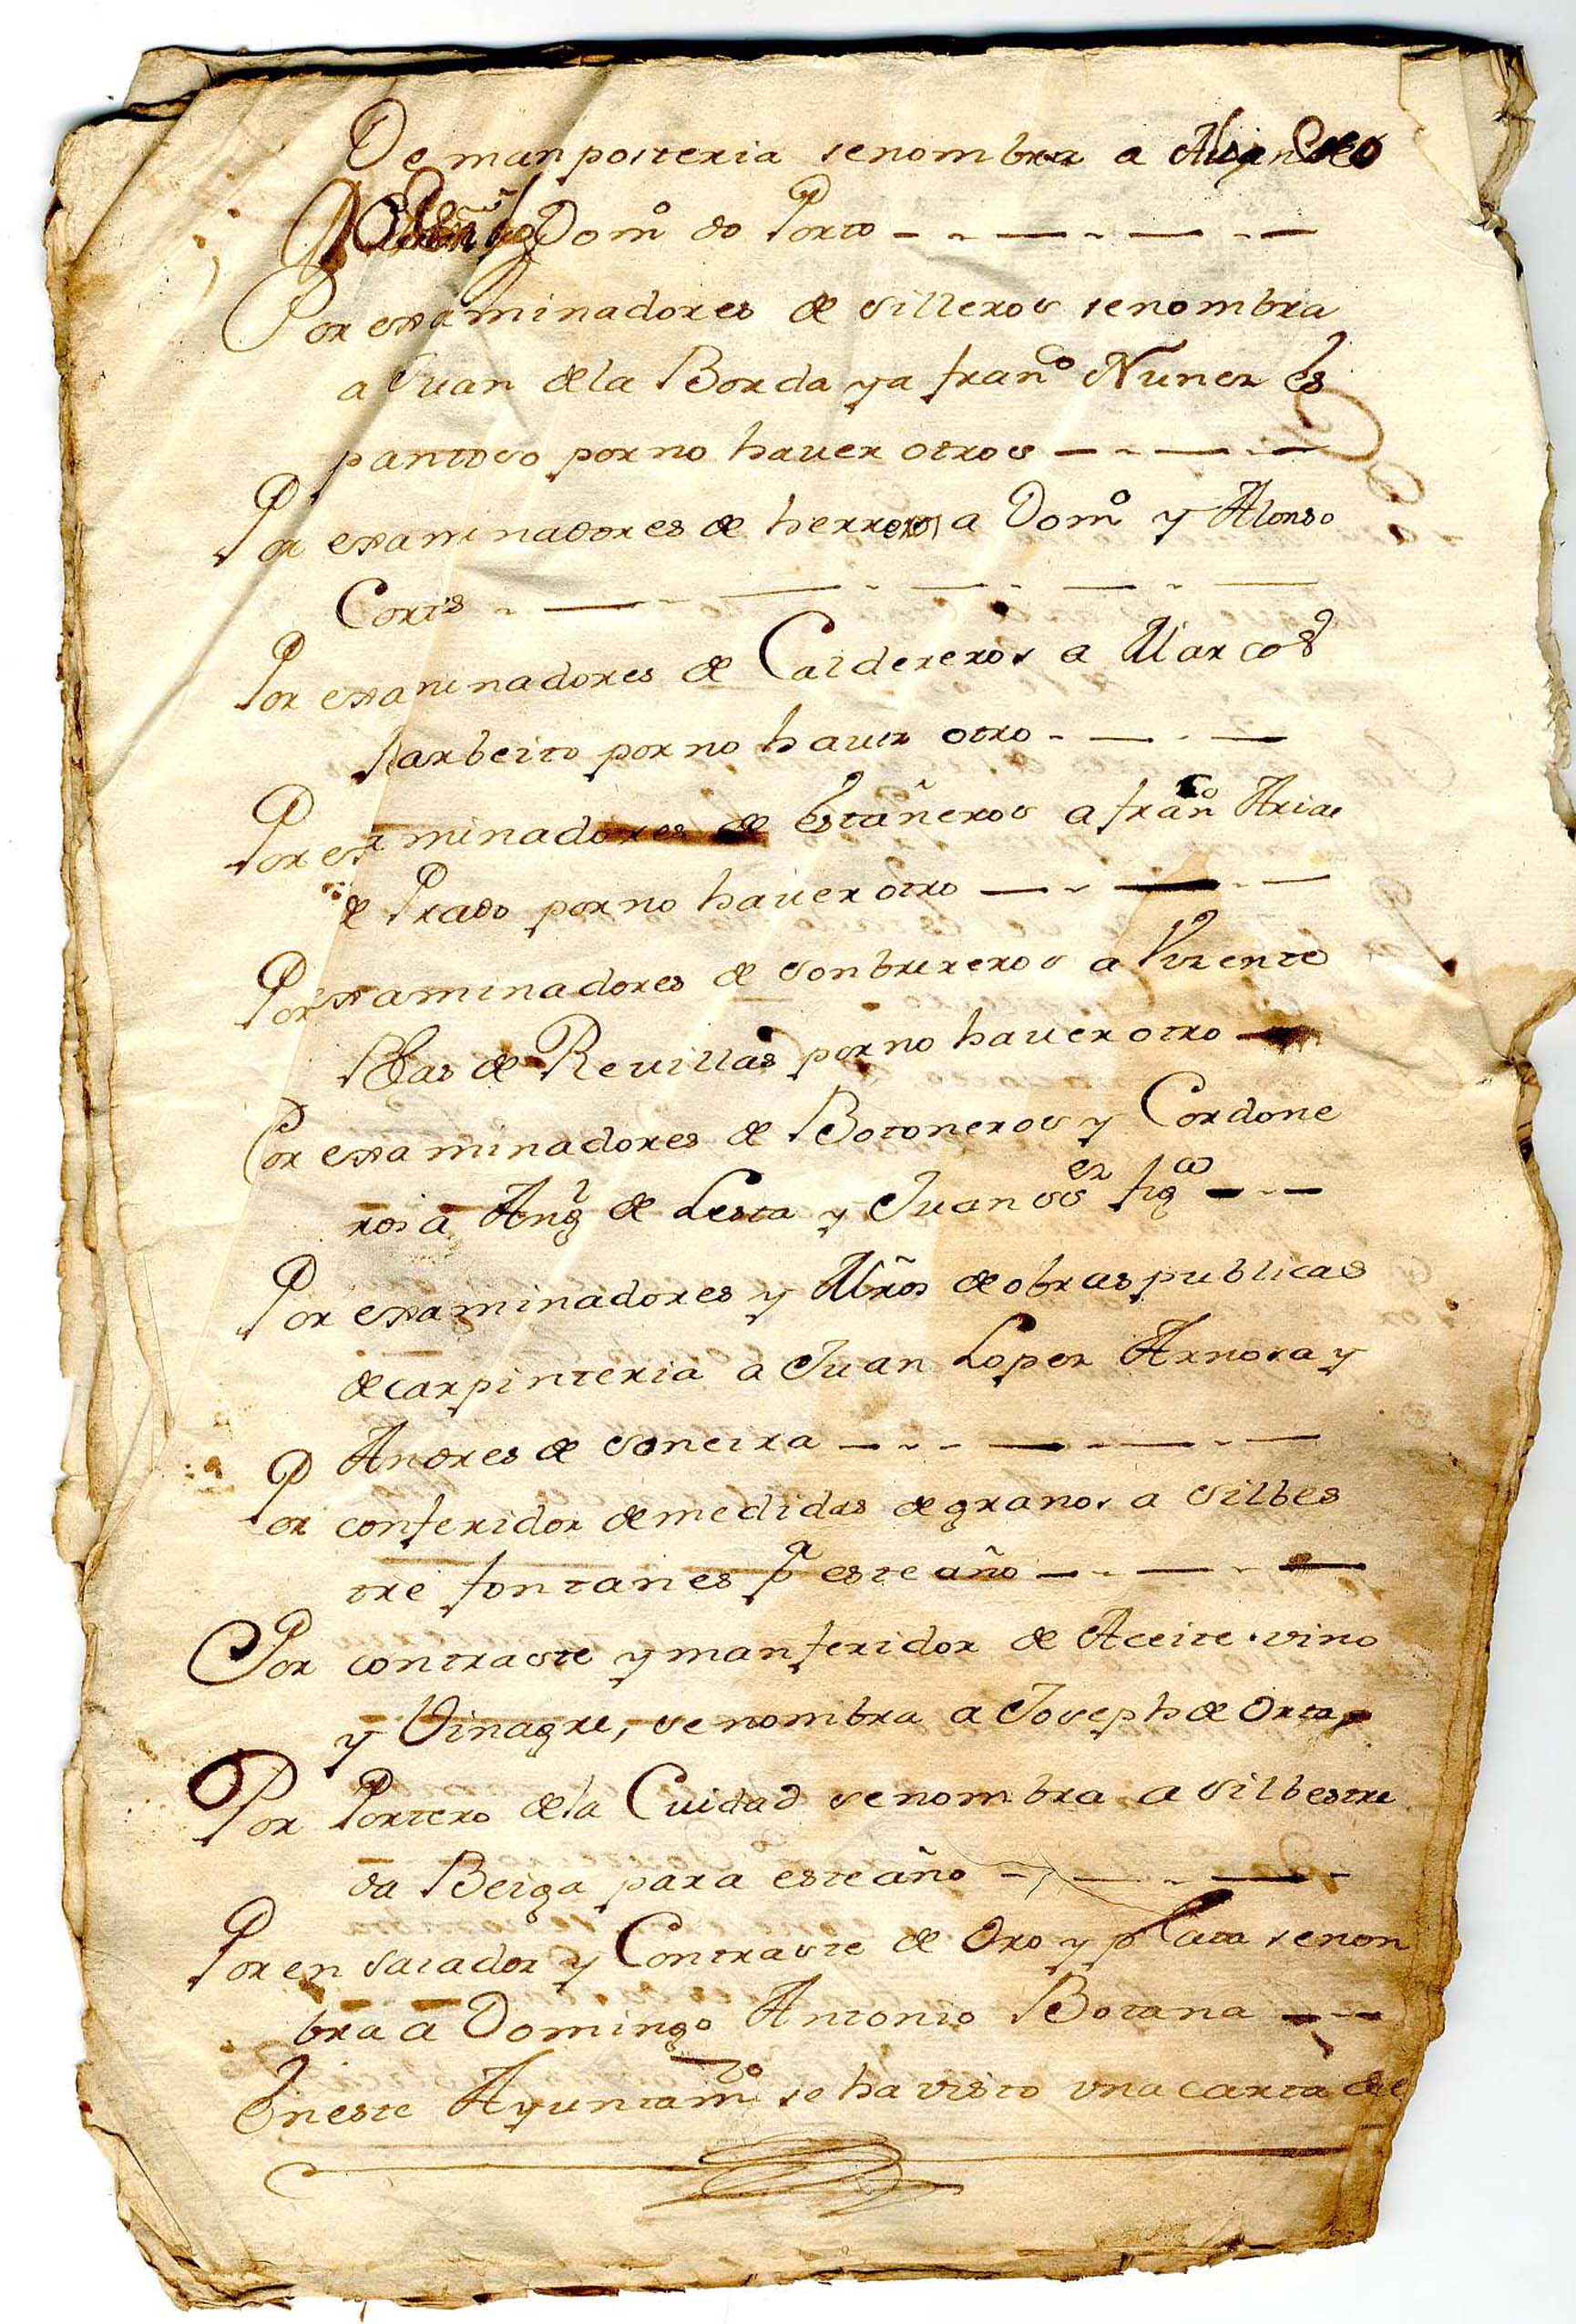 De manposteria se nombra a
Domº do Porto
Por examinadores de silleros se nombra
a Juan de la Borda y a franco Nunez Es
pantoso por no hauer otros
Por examinadores de herreros a Domº y Alonso
Cortes
Por examinadores de Caldereros a Marcos
Barbeito por no hauer otro
Por examinadores de Estañeros a franco Arias
de Prado por no hauer otro
Por examinadores de sonbrereros a Vizente
Blas de Revillas por no hauer otro
Por examinadores de Botoneros y Cordone
ros a Angl de Lesta y Juan
Por examinadores y Mros de obras publicas
de carpinteria a Juan Lopez Arnosa y
Andres de Soneira
Por conferidor de medidas de granos a Silbes
tre fontanes pa este año
Por contraste y manferidor de Aceite vino
y Vinagre, se nombra a Joseph de Orta
Por Portero de la Cuidad se nombra a Silbestre
da Beiga para este año
Por ensaiador y Contraste de Oro y plata se non
bra a Domingo Antonio Botana
En este Ayuntamto se ha visto vna carta de